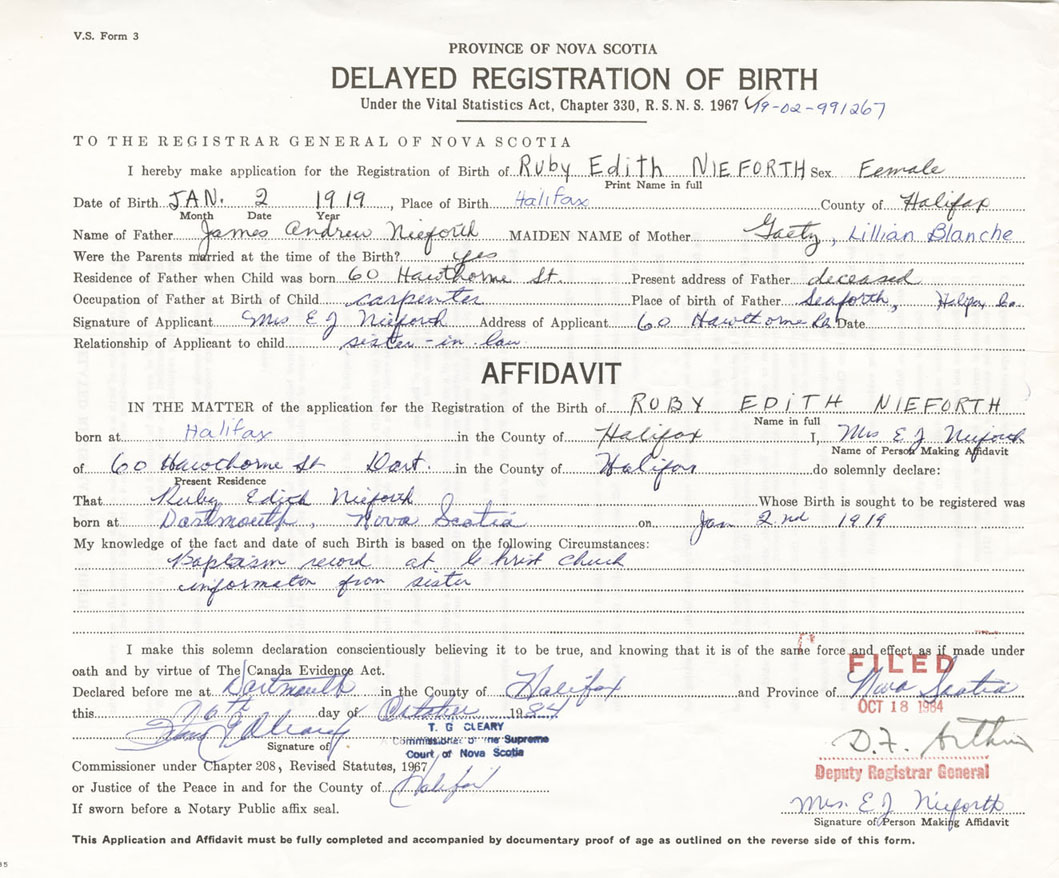 V.S. Form 3
PROVINCE OF NOVA SCOTIA
DELAYED REGISTRATION OF BIRTH
Under the Vital Statistics Act, Chapter 330, R.S.N.S. 1967 19-02-991267
TO THE REGISTRAR GENERAL OF NOVA SCOTIA
I hereby make application for the Registration of Birth of Ruby Edith NIEFORTH Sex Female
Print Name in full
Date of Birth JAN. 2 1919, Place of Birth Halifax County of Halifax
Month Date Year
Name of Father James Andrew Nieforth MAIDEN NAME of Mother Gaety, Lillian Blanche
Were the Parents married at the time of the Birth? yes
Residence of Father when Child was born 60 Hawthorne St. Present address of Father deceased
Occupation of Father at Birth of Child carpenter Place of birth of Father Seaforth, Halifax Co.
Signature of Applicant Mrs E J Nieforth Address of Applicant 60 Hawthorne Date
Relationship of Applicant to child sister-in-law
AFFIDAVIT
IN THE MATTER of the application for the Registration of the Birth of RUBY EDITH NIEFORTH
Name in full
born at Halifax in the County of Halifax I, Mrs E J Nieforth
Name of Person Making Affidavit
of 60 Hawthorne St Dart. in the County of Halifax do solemnly declare:
Present Residence
That Ruby Edith Nieforth Whose Birth is sought to be registered was
born at Dartmouth, Nova Scotia on Jan 2nd 1919
My knowledge of the fact and date of such Birth is based on the following Circumstances:
Baptism record at Christ Church
information from sister
I make this solemn declaration conscientiously believing it to be true, and knowing that it is of the same force and effect as if made under
oath and by virtue of The Canada Evidence Act.
FILED
Declared before me at Dartmouth in the County of Halifax and Province of Nova Scotia
OCT 18 1984
this day of October 1984
T. G CLEARY
A Commissioner of the Supreme
Court of Nova Scotia
Signature of
D.F. Arthur
Commissioner under Chapter 208, Revised Statutes, 1967
Deputy Registrar General
or Justice of the Peace in and for the County of Halifax
Mrs. E J Nieforth
If sworn before a Notary Public affix seal.
Signature of Person Making Affidavit
This Application and Affidavit must be fully completed and accompanied by documentary proof of age as outlined on the reverse side of this form.